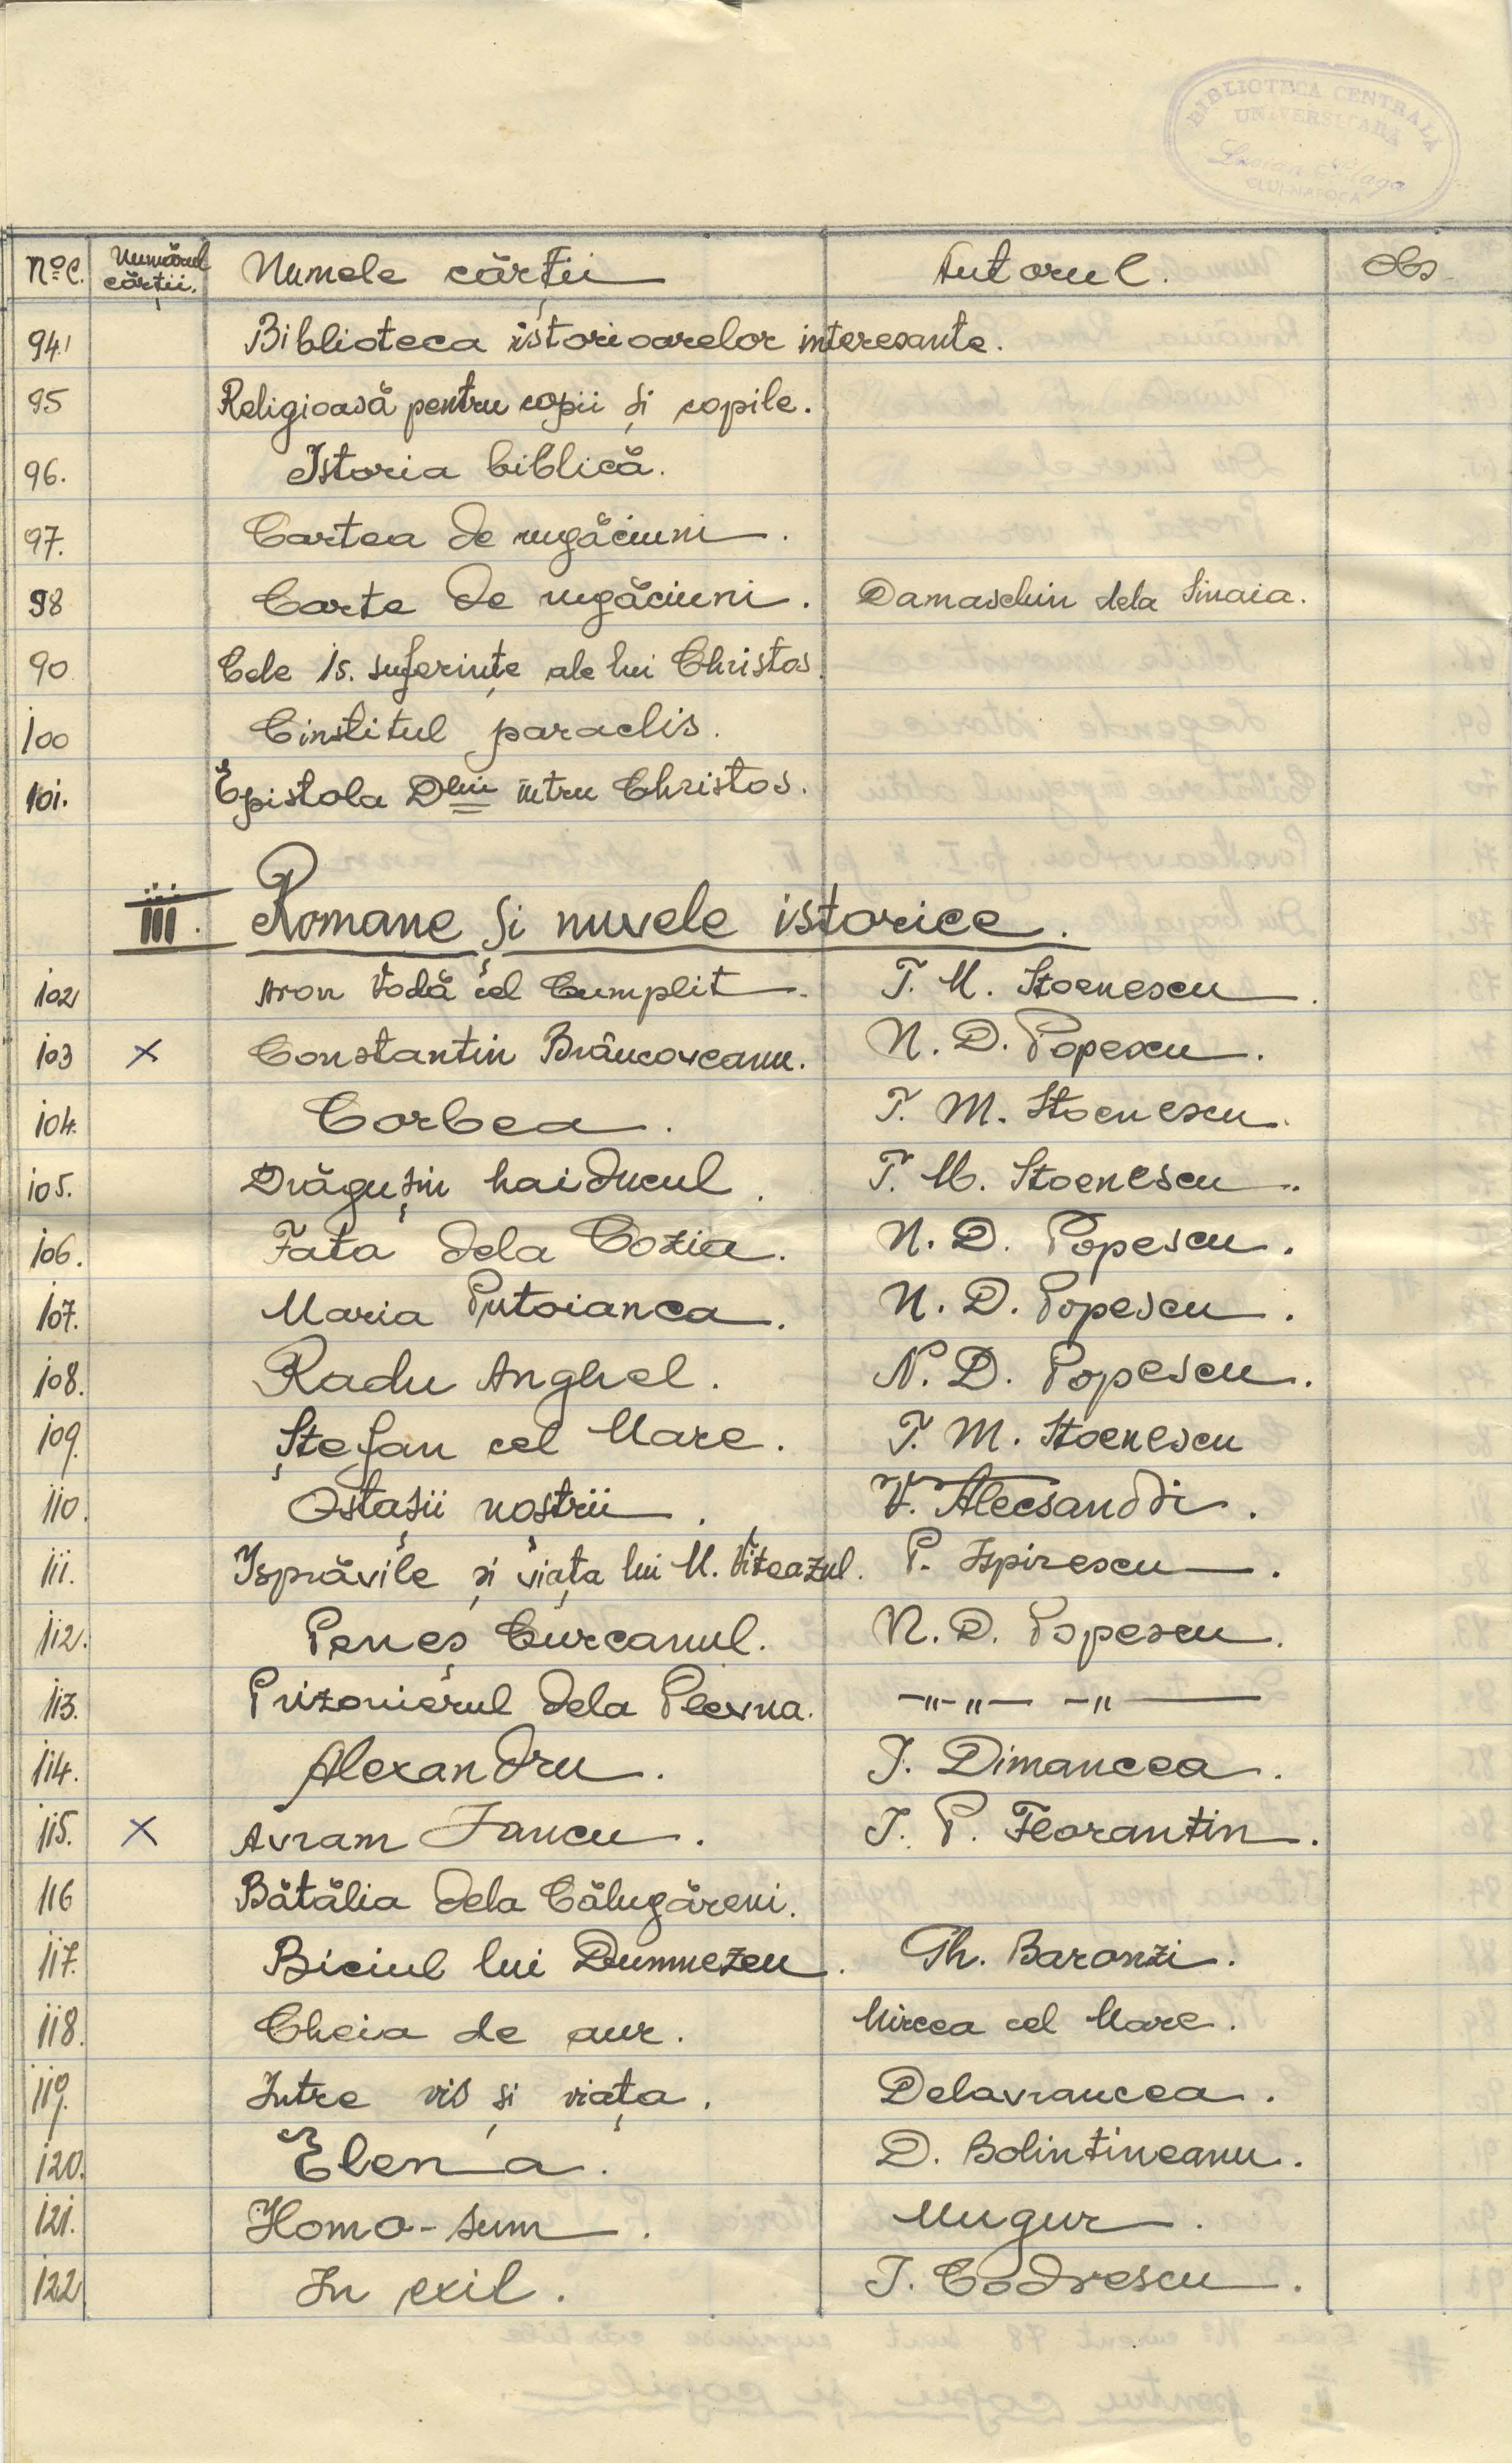 BIBLIOTECA CENTRALA
UNIVERSITARA
Lucian Blaga
CLUJ-NAPOCA
Nº C. Numărul cărții. Numele cărții Autorul. Obs
94. Biblioteca istorioarelor interesante.
95 Religioasă pentru copii și copile.
96. Istoria biblică.
97. Cartea de rugăciuni.
98 Carte de rugăciuni. Damaschin dela Sinaia.
90 Cele 15. suferințe ale lui Christos.
100 Cinstitul paraclis.
101. Epistola Dlui intru Christos.
III. Romane și nuvele istorice.
102 Aron Vodă cel Cumplit. T. M. Stoenescu.
103 x Constantin Brâncoveanu. N. D. Popescu.
104. Corbea. T. M. Stoenescu.
105. Drăgușin haiducul. T. M. Stoenescu.
106. Fata dela Cozia. N. D. Popescu.
107. Maria Putoianca. N. D. Popescu.
108. Radu Anghel. N. D. Popescu.
109. Ștefan cel Mare. T. M. Stoenescu
110. Ostașii noștrii. V. Alecsandri.
111. Isprăvile și viața lui M. Viteazul. P. Ispirescu.
112. Peneș Curcanul. N. D. Popescu.
113. Prizonierul dela Plevna. -"-"- -"-
114. Alexandru. I. Dimancea.
115. x Avram Iancu. I. P. Florantin.
116 Bătălia dela Călugăreni.
117. Biciul lui Dumnezeu. Th. Baronzi.
118. Cheia de aur. Mircea cel Mare.
119. Intre vis și viața. Delavrancea.
120. Elena. D. Bolintineanu.
121. Homo-sum. Mugur.
122 In exil. I. Codrescu.